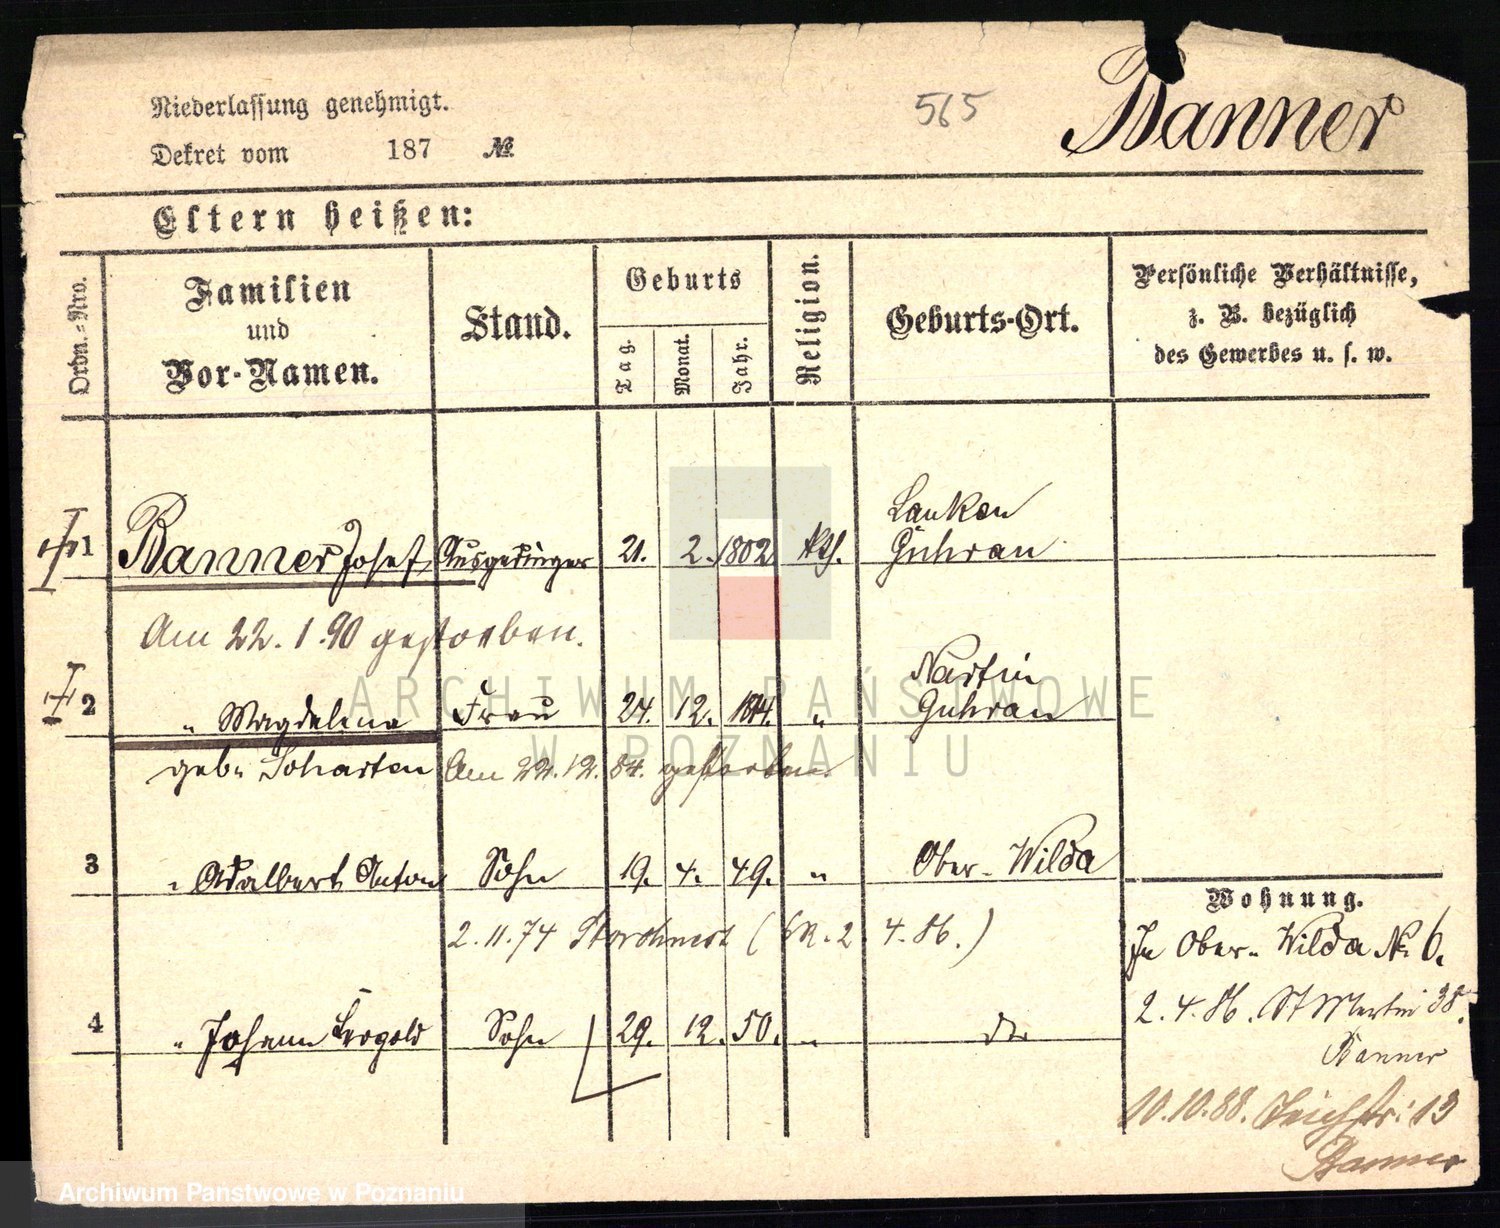 Niederlassung genehmigt.
Dekret vom 187 №
565
Banner
Eltern heißen:
Ordn.-Nro.
Familien und Vor-Namen.
Stand.
Geburts
Tag.
Monat.
Jahr.
Religion.
Geburts-Ort.
Persönliche Verhältnisse, z. B. bezüglich des Gewerbes u. s. w.
Lanken
1 Banner Josef Ausgedinger 21. 2. 1802 kth. Guhrau
Am 22. 1. 90 gestorben.
2 " Magdalena Frau 24. 12. 1814. " Guhrau
geb. Am 22. 12. 84. gestorben
3 " Adalbert Anton Sohn 19. 4. 49. " Ober-Wilda
2. 11. 74 Storchnest ( 2. 4. 86. )
4 " Johann Leopold Sohn 29. 12. 50. "
Wohnung.
In Ober-Wilda № 6.
2. 4. 86. St Martin 38.
Banner
10. 10. 88. Teichstr. 13
Banner
ARCHIWUM PAŃSTWOWE
W POZNANIU
Archiwum Państwowe w Poznaniu